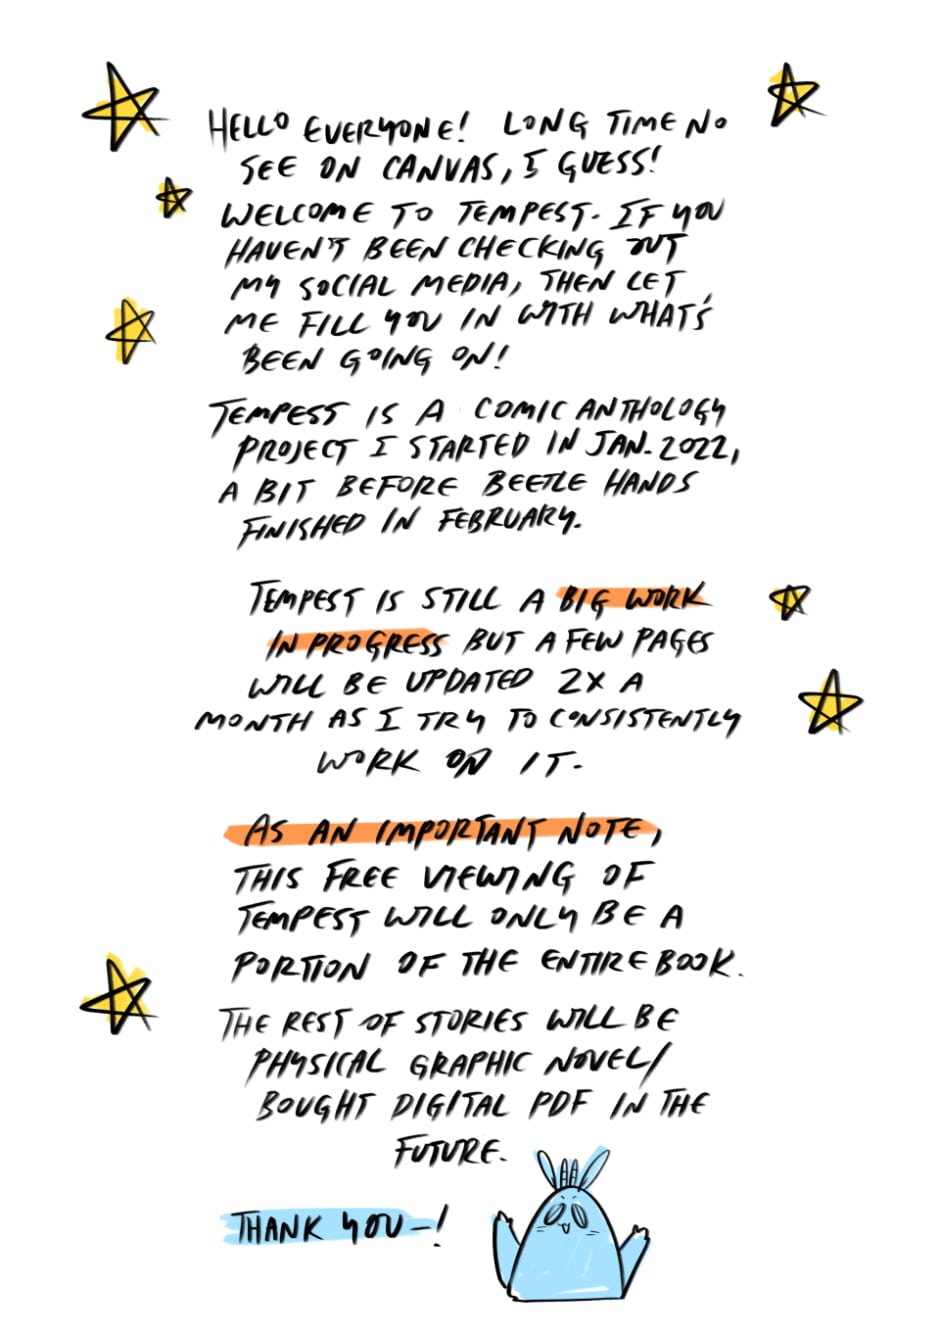 HELLO EVERYONE! LONG TIME NO
SEE ON CANVAS, I GUESS!
WELCOME TO TEMPEST. IF YOU
HAVEN'T BEEN CHECKING OUT
MY SOCIAL MEDIA, THEN LET
ME FILL YOU IN WITH WHAT'S
BEEN GOING ON!
TEMPEST IS A COMIC ANTHOLOGY
PROJECT I STARTED IN JAN. 2022,
A BIT BEFORE BEETLE HANDS
FINISHED IN FEBRUARY.
TEMPEST IS STILL A BIG WORK
IN PROGRESS BUT A FEW PAGES
WILL BE UPDATED 2X A
MONTH AS I TRY TO CONSISTENTLY
WORK ON IT.
AS AN IMPORTANT NOTE,
THIS FREE VIEWING OF
TEMPEST WILL ONLY BE A
PORTION OF THE ENTIRE BOOK.
THE REST OF STORIES WILL BE
PHYSICAL GRAPHIC NOVEL/
BOUGHT DIGITAL PDF IN THE
FUTURE.
THANK YOU-!